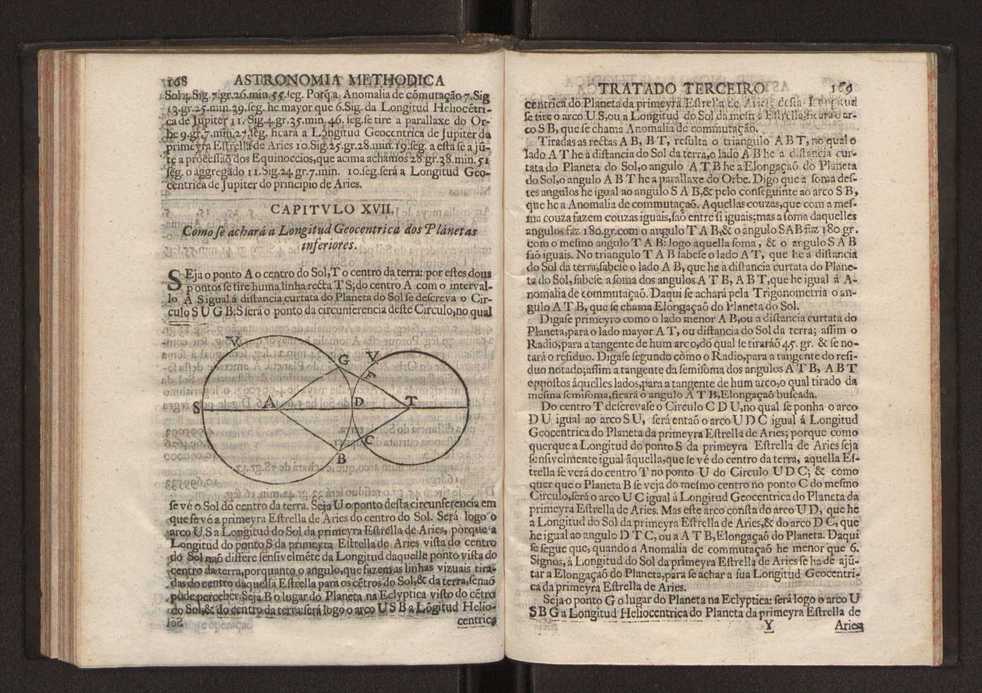 168 ASTRONOMIA METHODICA
Sol 4.Sig.7.gr.26.min.55.seg. Porq̃ a Anomalia de cõmutação 7.Sig
13.gr.25.min.39.seg. he mayor que 6.Sig. da Longitud Heliocẽtri-
ca de Jupiter 11. Sig.4.gr.35.min. 46. seg. se tire a parallaxe do Or-
be 9.gr.7.min.27.seg. ficará a Longitud Geocentrica de Jupiter da
primeyra Estrella de Aries 10.Sig.25.gr.28.min.19.seg. a esta se a jũ-
te a procesaõ dos Equinoccios, que acima achamos 28 gr.38.min.51
seg. o aggregado 11.Sig.24 gr.7.min. 10.seg. será a Longitud Geo-
centrica de Jupiter do principio de Aries.
CAPITVLO XVII.
Como se achará a Longitud Geocentrica dos Planetas
inferiores.
SEja o ponto A o centro do Sol, T o centro da terra: por estes dous
pontos se tire huma linha recta T S; do centro A com o interval-
lo A S igual á distancia curtata do Planeta do Sol se descreva o Cir-
culo S U G B: S será o ponto da circunferencia deste Circulo, no qual
V
G V
A
S A D T
C
B
se vé o Sol do centro da terra. Seja U o ponto desta circunferencia em
que se vé a primeyra Estrella de Aries do centro do Sol. Será logo o
arco U S a Longitud do Sol da primeyra Estrella de Aries, porque a
Longitud do ponto S da primeyra Estrella de Aries vista do centro
do Sol naõ differe sensivelmẽte da Longitud daquelle ponto vista do
centro da terra, porquanto o angulo, que fazem as linhas vizuais tira-
das do centro daquella Estrella para os cẽtros do Sol, & da terra, se naõ
póde perceber. Seja B o lugar do Planeta na Eclyptica visto do cẽtro
do Sol, & do centro da terra: será logo o arco U S B a Lõgitud Helio-
centrica
TRATADO TERCEIRO 169
centrica do Planeta da primeyra Estrella de Aries; desta Longitud
se tire o arco U S, ou a Longitud do Sol da mesma Estrella, ficará o ar-
co S B, que se chama Anomalia de commutaçaõ.
Tiradas as rectas A B, B T, resulta o triangulo A B T, no qual o
lado A T he a distancia do Sol da terra, o lado A B he a distancia cur-
tata do Planeta do Sol, o angulo A T B he a Elongaçaõ do Planeta
do Sol, o angulo A B T he a parallaxe do Orbe. Digo que a soma des-
tes angulos he igual ao angulo S A B, & pelo conseguinte ao arco S B,
que he a Anomalia de commutaçaõ. Aquellas couzas, que com a mes-
ma couza fazem couzas iguais, saõ entre si iguais; mas a soma daquelles
angulos faz 180.gr.com o angulo T A B, & o angulo SAB faz 180 gr.
com o mesmo angulo T A B: logo aquella soma, & o angulo S A B
saõ iguais. No triangulo T A B sabese o lado A T, que he a distancia
do Sol da terra, sabese o lado A B, que he a distancia curtata do Plane-
ta do Sol, sabese a soma dos angulos A T B, A B T, que he igual á A-
nomalia de commutaçaõ. Daqui se achará pela Trigonometria o an-
gulo A T B, que se chama Elongaçaõ do Planeta do Sol.
Digase primeyro como o lado menor A B, ou a distancia curtata do
Planeta, para o lado mayor A T, ou distancia do Sol da terra; assim o
Radio, para a tangente de hum arco, do qual se tiraráõ 45. gr. & se no-
tará o residuo. Digase segundo como o Radio, para a tangente do resi-
duo notado; assim a tangente da semisoma dos angulos A T B, A B T
oppostos àquelles lados, para a tangente de hum arco, o qual tirado da
mesma semisoma, ficará o angulo A T B, Elongaçaõ buscada.
Do centro T descrevase o Circulo C D U, no qual se ponha o arco
D U igual ao arco S U, será entaõ o arco U D C igual á Longitud
Geocentrica do Planeta da primeyra Estrella de Aries; porque como
querque a Longitud do ponto S da primeyra Estrella de Aries seja
sensivelmente igual àquella, que se vé do centro da terra, aquella Es-
trella se verá do centro T no ponto U do Circulo U D C; & como
quer que o Planeta B se veja do mesmo centro no ponto C do mesmo
Circulo, será o arco U C igual á Longitud Geocentrica do Planeta da
primeyra Estrella de Aries. Mas este arco consta do arco U D, que he
a Longitud do Sol da primeyra Estrella de Aries, & do arco D C, que
he igual ao angulo D T C, ou a A T B, Elongaçaõ do Planeta. Daqui
se segue que, quando a Anomalia de commutaçaõ he menor que 6.
Signos, á Longitud do Sol da primeyra Estrella de Aries se ha de ajũ-
tar a Elongaçaõ do Planeta, para se achar a sua Longitud Geocentri-
ca da primeyra Estrella de Aries.
Seja o ponto G o lugar do Planeta na Eclyptica: será logo o arco U
S B G a Longitud Heliocentrica do Planeta da primeyra Estrella de
Y Aries;